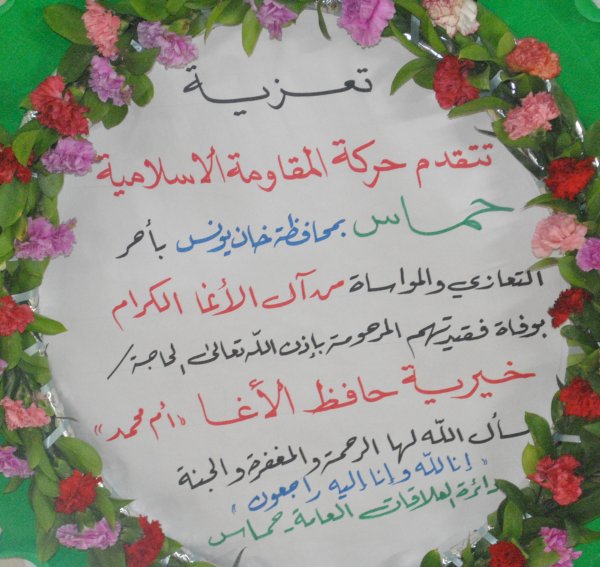 تعزية
تتقدم حركة المقاومة الاسلامية
حماس بمحافظة خان يونس بأحر
التعازي والمواساة من آل الأغا الكرام
بوفاة فقيدتهم المرحومة بإذن الله تعالى الحاجة /
خيرية حافظ الأغا "أم محمد"
سأل الله لها الرحمة والمغفرة والجنة
"إنا لله وإنا إليه راجعون"
دائرة العلاقات العامة - حماس